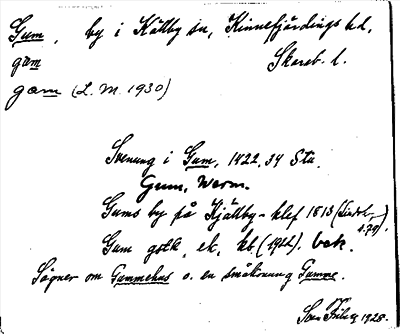 Gum, by i Källby sn, Kinnefjärdings hd,
gum Skarab. l.
gam (L. M. 1930)
Svenung i Gum, 1422. 34 Sta
Gum, Warm.
Gums by på Kjällby-klef 1813 (Lindol,
1.79).
Gum gstk, ek, kb. (1912). bok.
Sägner om Gummehus o. en småkonung Gumme.
1928.